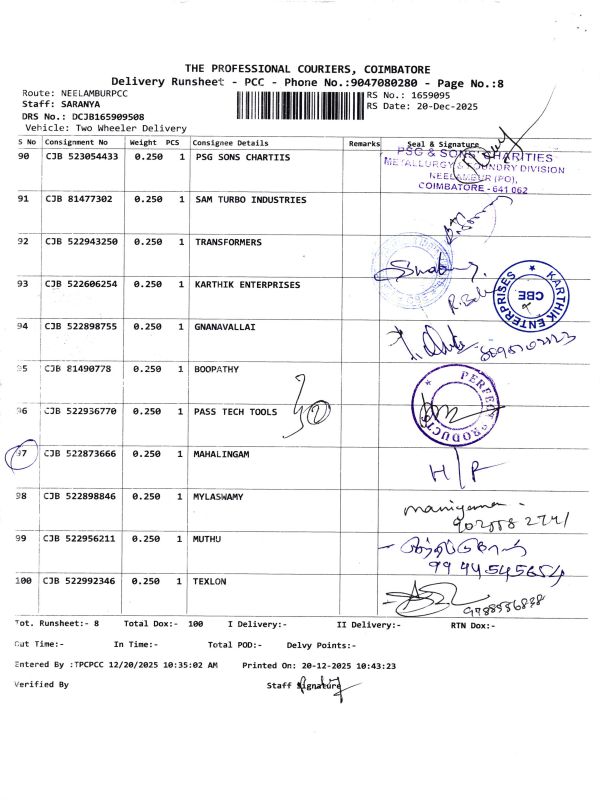 THE PROFESSIONAL COURIERS, COIMBATORE
Delivery Runsheet - PCC - Phone No.:9047080280 - Page No.:8
Route: NEELAMBURPCC
Staff: SARANYA
DRS No.: DCJB165909508
Vehicle: Two Wheeler Delivery
RS No.: 1659095
RS Date: 20-Dec-2025
S No Consignment No Weight PCS Consignee Details Remarks Seal & Signature
90 CJB 523054433 0.250 1 PSG SONS CHARTIIS
PSG & SONS' CHARITIES
METALLURGY & FOUNDRY DIVISION
NEELAMBUR (PO),
COIMBATORE - 641 062
91 CJB 81477302 0.250 1 SAM TURBO INDUSTRIES
92 CJB 522943250 0.250 1 TRANSFORMERS
93 CJB 522606254 0.250 1 KARTHIK ENTERPRISES
KARTHIK ENTERPRISES
CBE
94 CJB 522898755 0.250 1 GNANAVALLAI
95 CJB 81490778 0.250 1 BOOPATHY
96 CJB 522936770 0.250 1 PASS TECH TOOLS
PERFECT PRODUCTS
97 CJB 522873666 0.250 1 MAHALINGAM
H/R
98 CJB 522898846 0.250 1 MYLASWAMY
99 CJB 522956211 0.250 1 MUTHU
99 44 545654
100 CJB 522992346 0.250 1 TEXLON
Tot. Runsheet:- 8 Total Dox:- 100 I Delivery:- II Delivery:- RTN Dox:-
Out Time:- In Time:- Total POD:- Delvy Points:-
Entered By :TPCPCC 12/20/2025 10:35:02 AM Printed On: 20-12-2025 10:43:23
Verified By Staff Signature